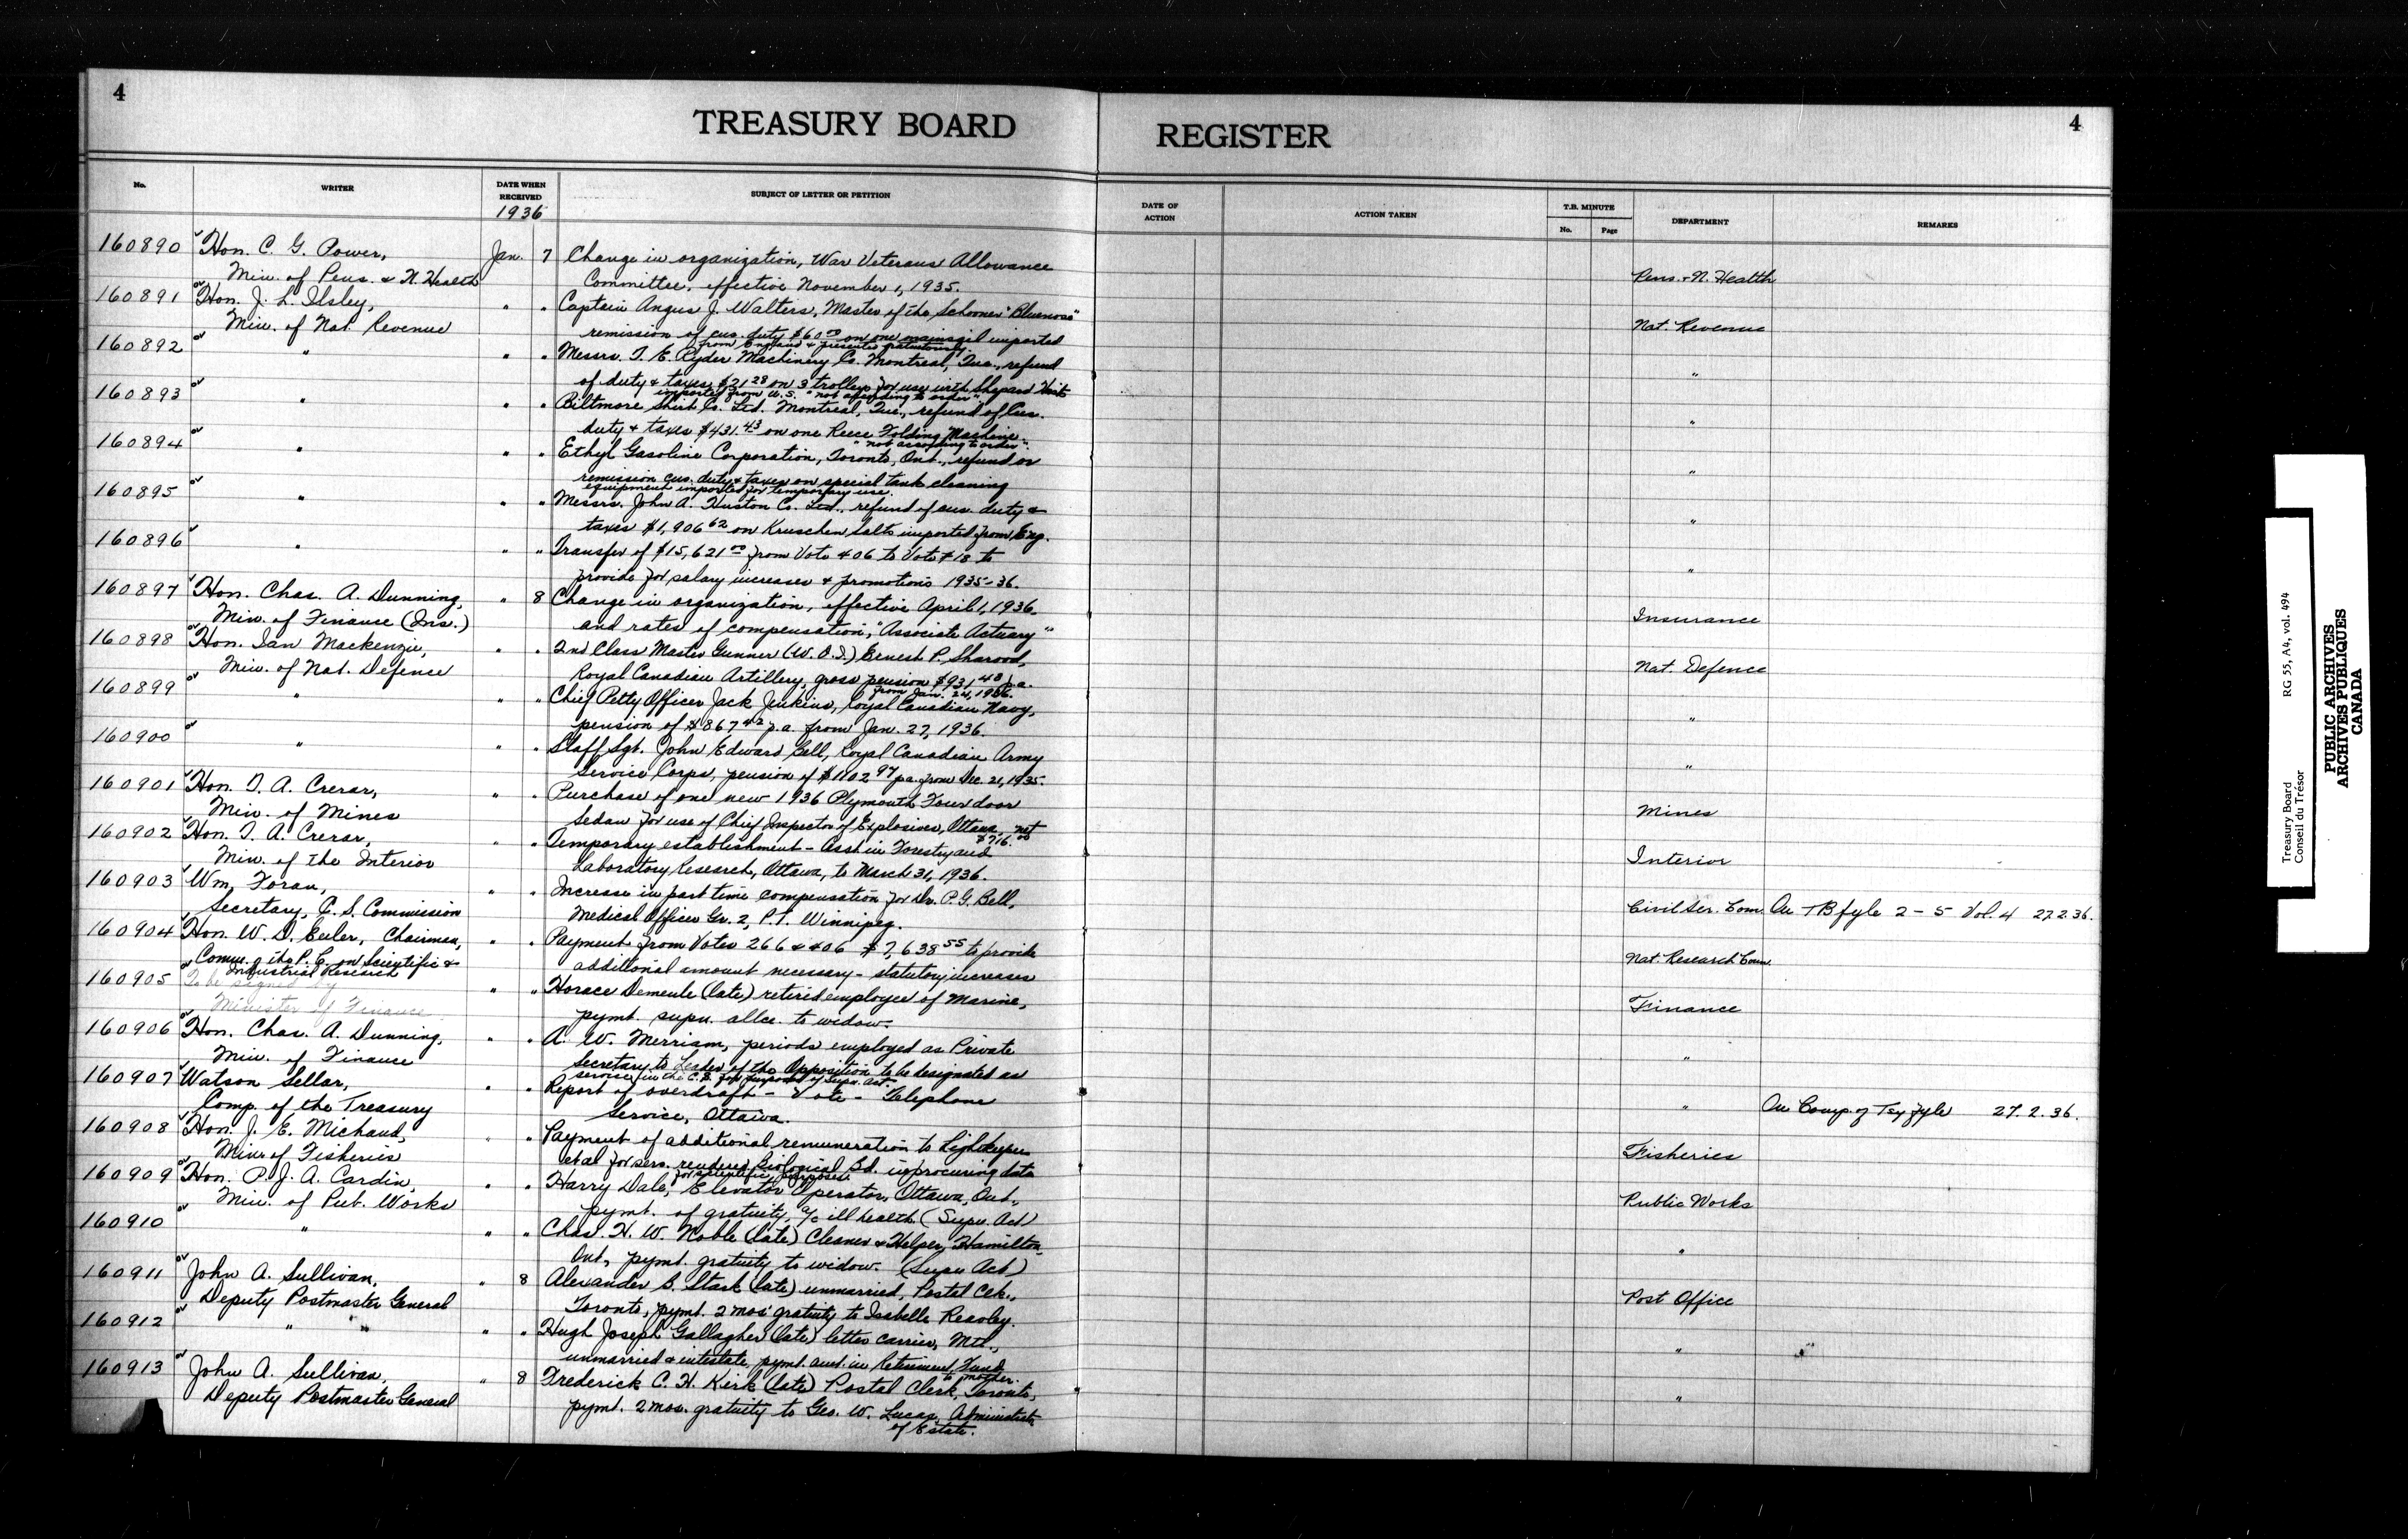 4
4
TREASURY BOARD REGISTER
No.
WRITER
DATE WHEN RECEIVED
1936
SUBJECT OF LETTER OR PETITION
DATE OF ACTION
ACTION TAKEN
T.B. MINUTE
No. Page
DEPARTMENT
REMARKS
160890 Hon. C. G. Power, Jan. 7 Change in organization, War Veterans Allowance
Min. of Pens. & N. Health Committee, effective November 1, 1935. Pens. & N. Health
160891 Hon. J. L. Ilsley, " " Captain Angus J. Walters, Master of the Schooner "Bluenose"
Min. of Nat. Revenue remission of cus. duty $60.00 on one mainsail imported Nat. Revenue
from England & presented gratuitously.
160892 " " " Messrs. T. E. Ryder Machinery Co. Montreal, Que., refund
of duty & taxes $21.28 on 3 trolleys for use with Shepard Hoist "
imported from U.S. "not according to order"
160893 " " " Biltmore Shirt Co. Ltd. Montreal, Que., refund of Cus.
duty & taxes $431.43 on one Reece Folding Machine "
"not according to order".
160894 " " " Ethyl Gasoline Corporation, Toronto, Ont., refund or
remission cus. duty & taxes on special tank cleaning "
equipment imported for temporary use.
160895 " " " Messrs. John A. Huston Co. Ltd., refund of cus. duty &
taxes $1,906.62 on Kruschen Salts imported from Eng. "
160896 " " " Transfer of $15,621.00 from Vote 406 to Vote 418 to
provide for salary increases & promotions 1935-36. "
160897 Hon. Chas. A. Dunning, " 8 Change in organization, effective April 1, 1936
Min. of Finance (Ins.) and rates of compensation, "Associate Actuary" Insurance
160898 Hon. Ian Mackenzie, " " 2nd Class Master Gunner (W.O.I.) Ernest P. Sharood,
Min. of Nat. Defence Royal Canadian Artillery, gross pension $931.48 p.a. Nat. Defence
from Jan. 24, 1936.
160899 " " " Chief Petty Officer Jack Jenkins, Royal Canadian Navy,
pension of $867.42 p.a. from Jan. 27, 1936. "
160900 " " " Staff Sgt. John Edward Bell, Royal Canadian Army
Service Corps, pension of $1102.97 p.a. from Dec. 21, 1935. "
160901 Hon. T. A. Crerar, " " Purchase of one new 1936 Plymouth Four door
Min. of Mines Sedan for use of Chief Inspector of Explosives, Ottawa, net Mines
$716.
160902 Hon. T. A. Crerar, " " Temporary establishment - Asst in Forestry and
Min. of the Interior Laboratory Research, Ottawa, to March 31, 1936. Interior
160903 Wm. Foran, " " Increase in part time compensation for Dr. P. G. Bell,
Secretary, C. S. Commission Medical Officer Gr. 2, P.T. Winnipeg. Civil Ser. Com. On TB fyle 2-5 Vol. 4 27.2.36.
160904 Hon. W. D. Euler, Chairman, " " Payment from Votes 266 & 406 $7,638.55 to provide
Comm. of the P. C. on Scientific & additional amount necessary - statutory increases Nat. Research Coun.
Industrial Research
160905 To be signed by " " Horace Demeule (late) retired employee of Marine,
Minister of Finance pymt. supn. allce. to widow. Finance
160906 Hon. Chas. A. Dunning, " " A. W. Merriam, periods employed as Private
Min. of Finance Secretary to Leader of the Opposition to be designated as "
service in the C.S. for purposes of Supn. Act
160907 Watson Sellar, " " Report of overdraft - Vote - Telephone
Comp. of the Treasury Service, Ottawa. " On Comp. of Tsy fyle 27.2.36.
160908 Hon. J. E. Michaud, " " Payment of additional remuneration to Lightkeepers
Min. of Fisheries et al for serv. rendered Biological Bd. in procuring data Fisheries
for scientific purposes.
160909 Hon. P. J. A. Cardin, " " Harry Dale, Elevator Operator, Ottawa, Ont.,
Min. of Pub. Works pymt. of gratuity, a/c ill health (Supn. Act) Public Works
160910 " " " Chas. H. W. Noble (late) Cleaner & Helper, Hamilton,
Ont., pymt. gratuity to widow. (Supn Act) "
160911 John A. Sullivan, " 8 Alexander B. Stark (late) unmarried, Postal Clk.,
Deputy Postmaster General Toronto, pymt. 2 mos' gratuity to Isabelle Reaoley. Post Office
160912 " " " " Hugh Joseph Gallagher (late) letter carrier, Mtl.,
unmarried & intestate, pymt. amt. in Retirement Fund "
to mother.
160913 John A. Sullivan, " 8 Frederick C. H. Kirk (late) Postal Clerk, Toronto,
Deputy Postmaster General pymt. 2 mos. gratuity to Geo. W. Lucas, Administrator "
of Estate.
Treasury Board RG 55, A4, vol. 494
Conseil du Trésor
PUBLIC ARCHIVES
ARCHIVES PUBLIQUES
CANADA